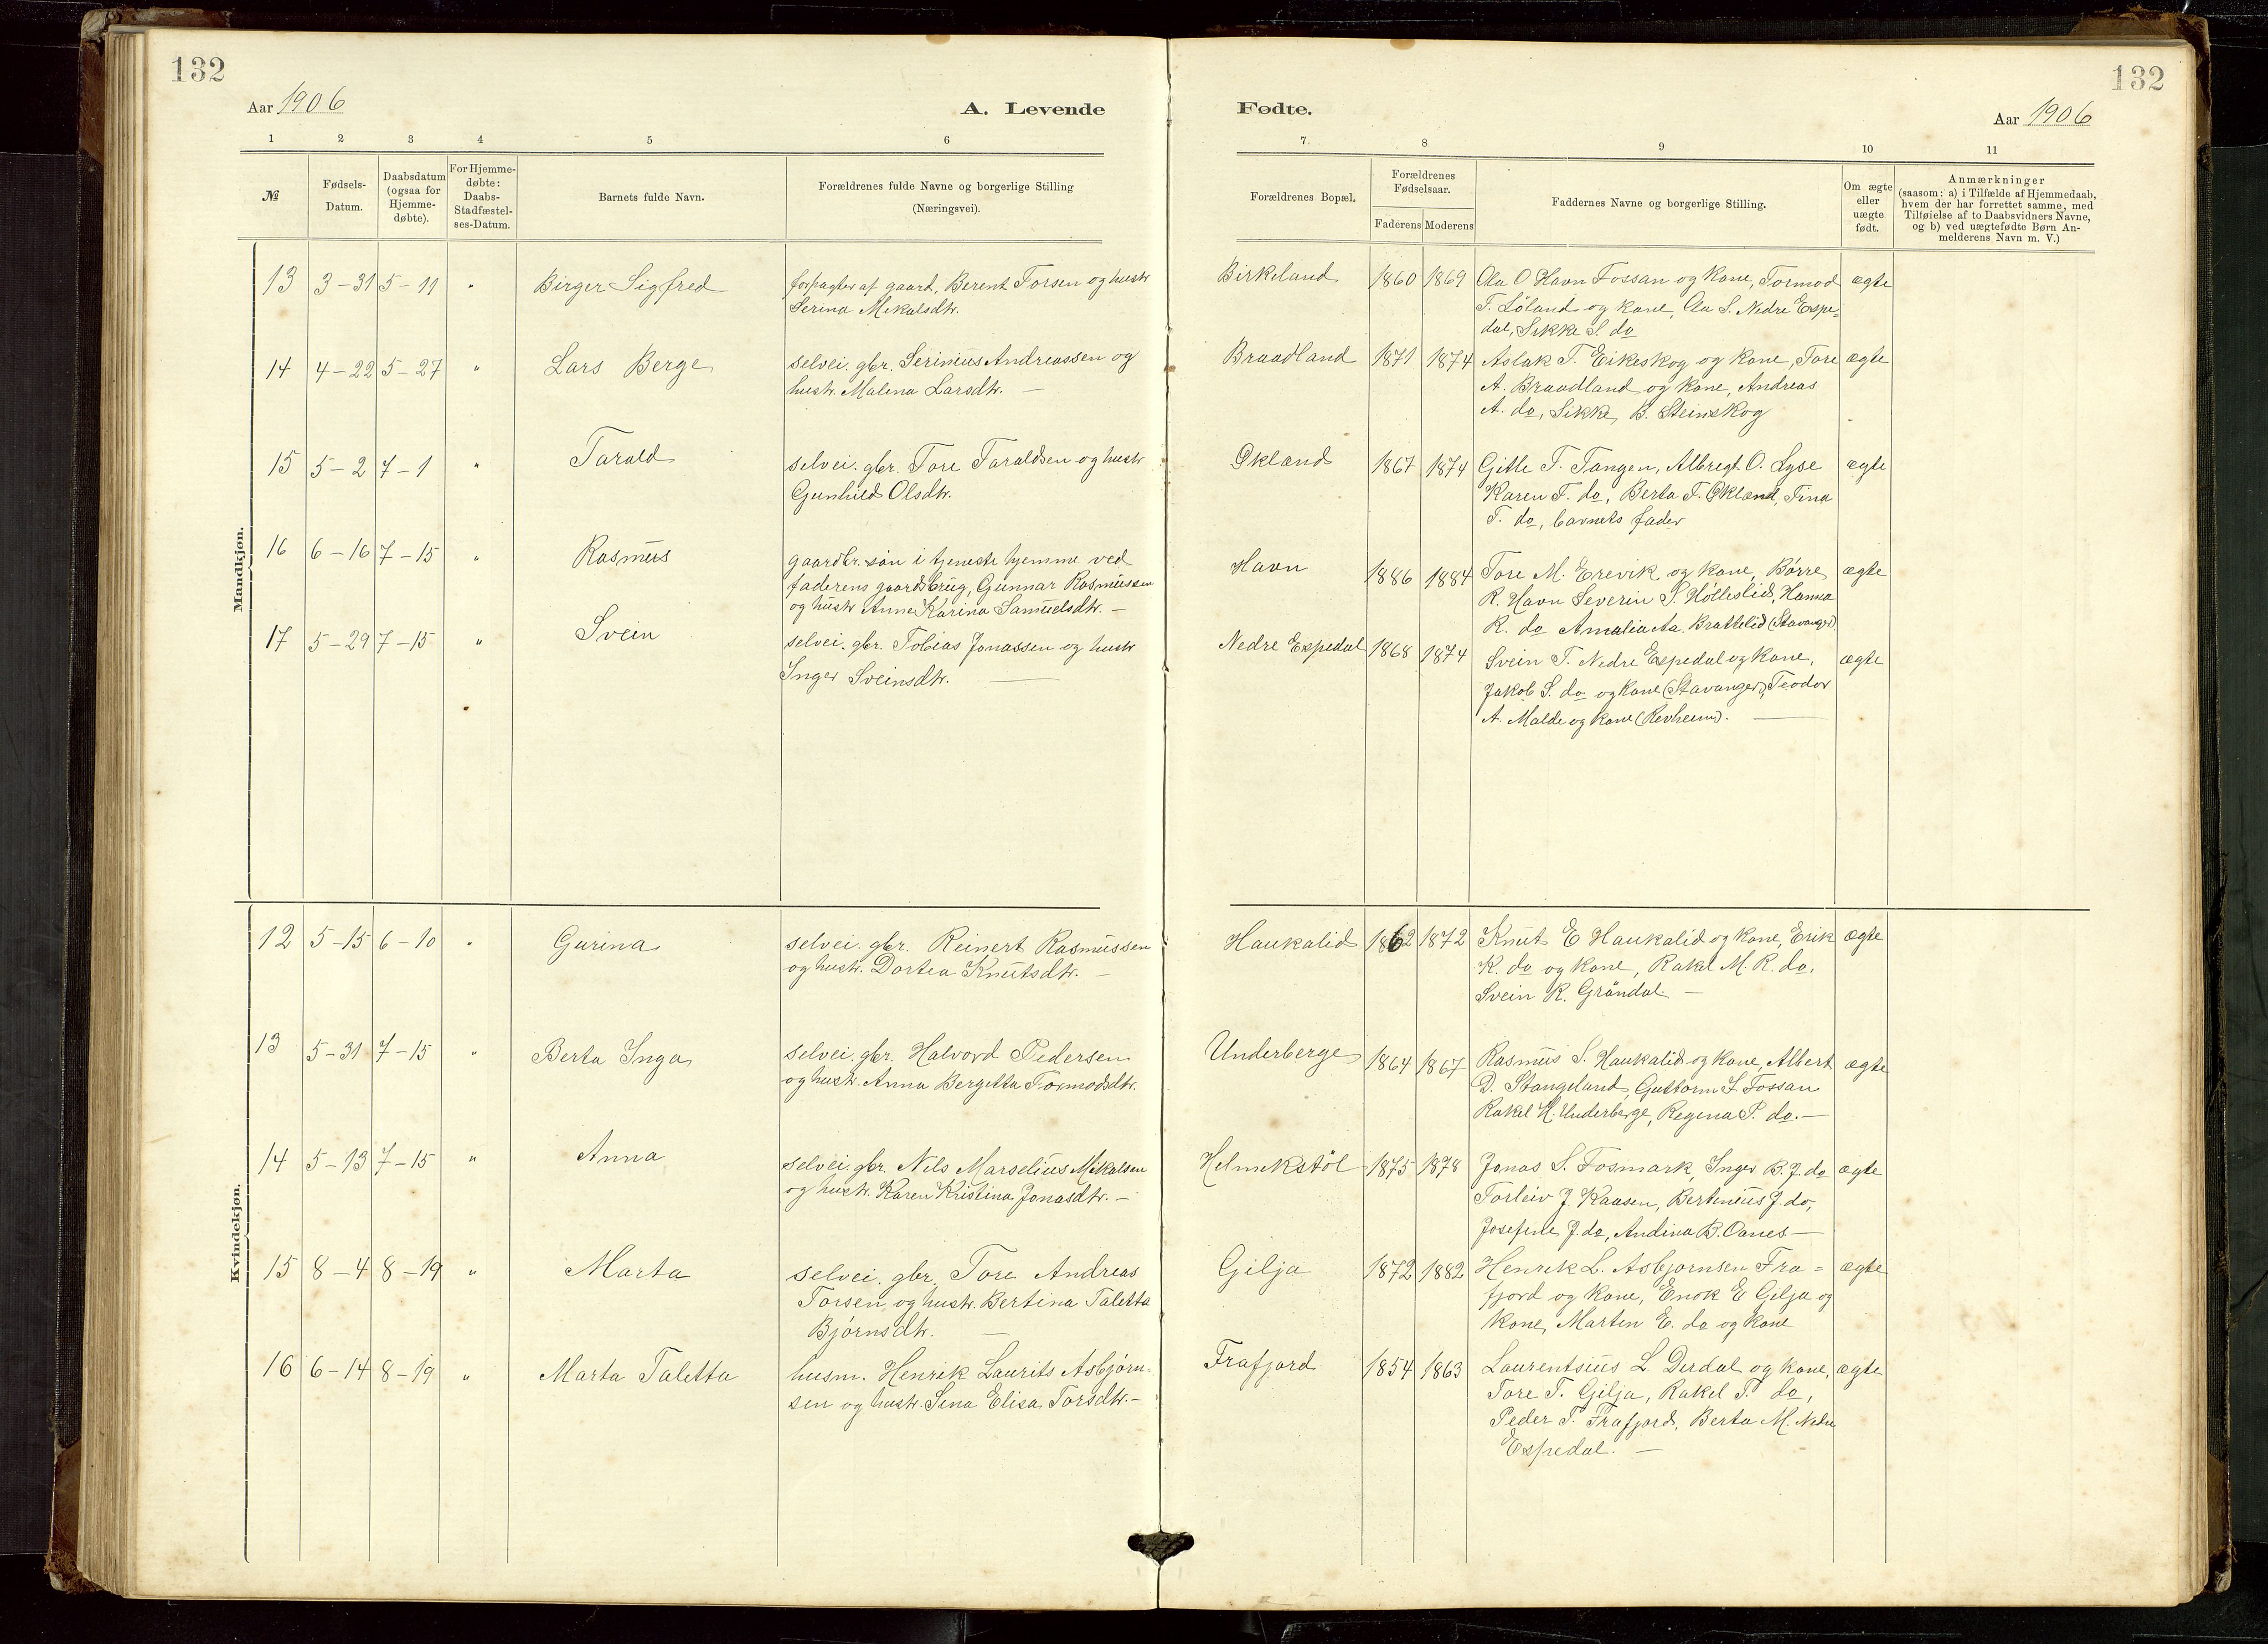 132
132
Aar 1906
A. Levende
Fødte.
Aar 1906
1 2 3 4 5 6
7. 8 9 10 11
№
Fødsels-
Datum.
Daabsdatum
(ogsaa for
Hjemme-
døbte).
For Hjemme-
døbte:
Daabs-
Stadfæstel-
ses-Datum.
Barnets fulde Navn.
Forældrenes fulde Navne og borgerlige Stilling
(Næringsvei).
Forældrenes Bopæl.
Forældrenes
Fødselsaar.
Faderens Moderens
Faddernes Navne og borgerlige Stilling.
Om ægte
eller
uægte
født.
Anmærkninger
(saasom: a) i Tilfælde af Hjemmedaab,
hvem der har forrettet samme, med
Tilføielse af to Daabsvidners Navne,
og b) ved uægtefødte Børn An-
melderens Navn m. V.)
Mandkjøn.
13 3-31 5-11 " Birger Sigfred
forpagter af gaard, Berent Torsen og hustr
Serina Mikalsdtr.
Birkeland 1860 1869
Aa O Havn Fossan og kone, Tormod
T. Løland og kone, Aa S. Nedre Espe-
dal, Sikke S. do
ægte
14 4-22 5-27 " Lars Berge
selvei. gbr. Serinius Andreassen og
hustr. Malena Larsdtr. —
Braadland 1871 1874
Aslak T. Eikeskog og kone, Tore
A. Braadland og kone, Andreas
A. do, Sikke B. Steinskog
ægte
15 5-2 7-1 " Tarald
selvei. gbr. Tore Taraldsen og hustr
Gunhild Olsdtr.
Økland 1867 1874
Gitle T. Tangen, Albregt O. Lyse
Karen T. do, Berta T. Økland, Tina
T. do, barnets fader
ægte
16 6-16 7-15 " Rasmus
gaardbr. søn i tjeneste hjemme ved
faderens gaardsbrug, Gunnar Rasmussen
og hustr Anne Karina Samuelsdtr. —
Havn 1886 1884
Tore M. Erevik og kone, Børre
R. Havn Severin S. Høllislid, Hanna
R. do Amalia Aa. Brattelid (Stavanger).
ægte
17 5-29 7-15 " Svein
selvei. gbr. Tobias Jonassen og hustr
Inger Sveinsdtr. —
Nedre Espedal 1868 1874
Svein T. Nedre Espedal og kone,
Jakob S. do og kone (Stavanger), Teodor
A. Malde og kone (Revheim). —
ægte
Kvindekjøn.
12 5-15 6-10 " Gurina
selvei. gbr. Reinert Rasmussen
og hustr. Dortea Knutsdtr. —
Haukalid 1862 1872
Knut E Haukalid og kone, Erik
K. do og kone, Rakel M. R. do.
Svein K. Grøndal. —
ægte
13 5-31 7-15 " Berta Inga
selvei. gbr. Halvord Pedersen
og hustr. Anna Bergetta Tormodsdtr.
Underberge 1864 1867
Rasmus S. Haukalid og kone, Albert
D. Stangeland, Guttorm S. Fossan
Rakel H. Underberge, Regina P. do. —
ægte
14 5-13 7-15 " Anna
selvei. gbr. Nils Marselius Mikalsen
og hustr. Karen Kristina Jonasdtr. —
Helmikstøl 1875 1878
Jonas S. Fosmark, Inger B. J. do
Torleiv J. Kaasen, Bertinius J. do,
Josefine J. do, Andina B. Oanes —
ægte
15 8-4 8-19 " Marta
selvei. gbr. Tore Andreas
Torsen og hustr. Bertina Taletta
Bjørnsdtr. —
Gilja 1872 1882
Henrik L. Asbjørnsen Fra-
fjord og kone, Enok E Gilja og
kone, Marten E. do og kone
ægte
16 6-14 8-19 " Marta Taletta
husm. Henrik Laurits Asbjørn-
sen og hustr. Sina Elisa Torsdtr. —
Frafjord 1854 1863
Laurentsius L. Dirdal og kone,
Tore T. Gilja, Rakel T. do,
Peder T. Frafjord, Berta M. Nedre
Espedal. —
ægte